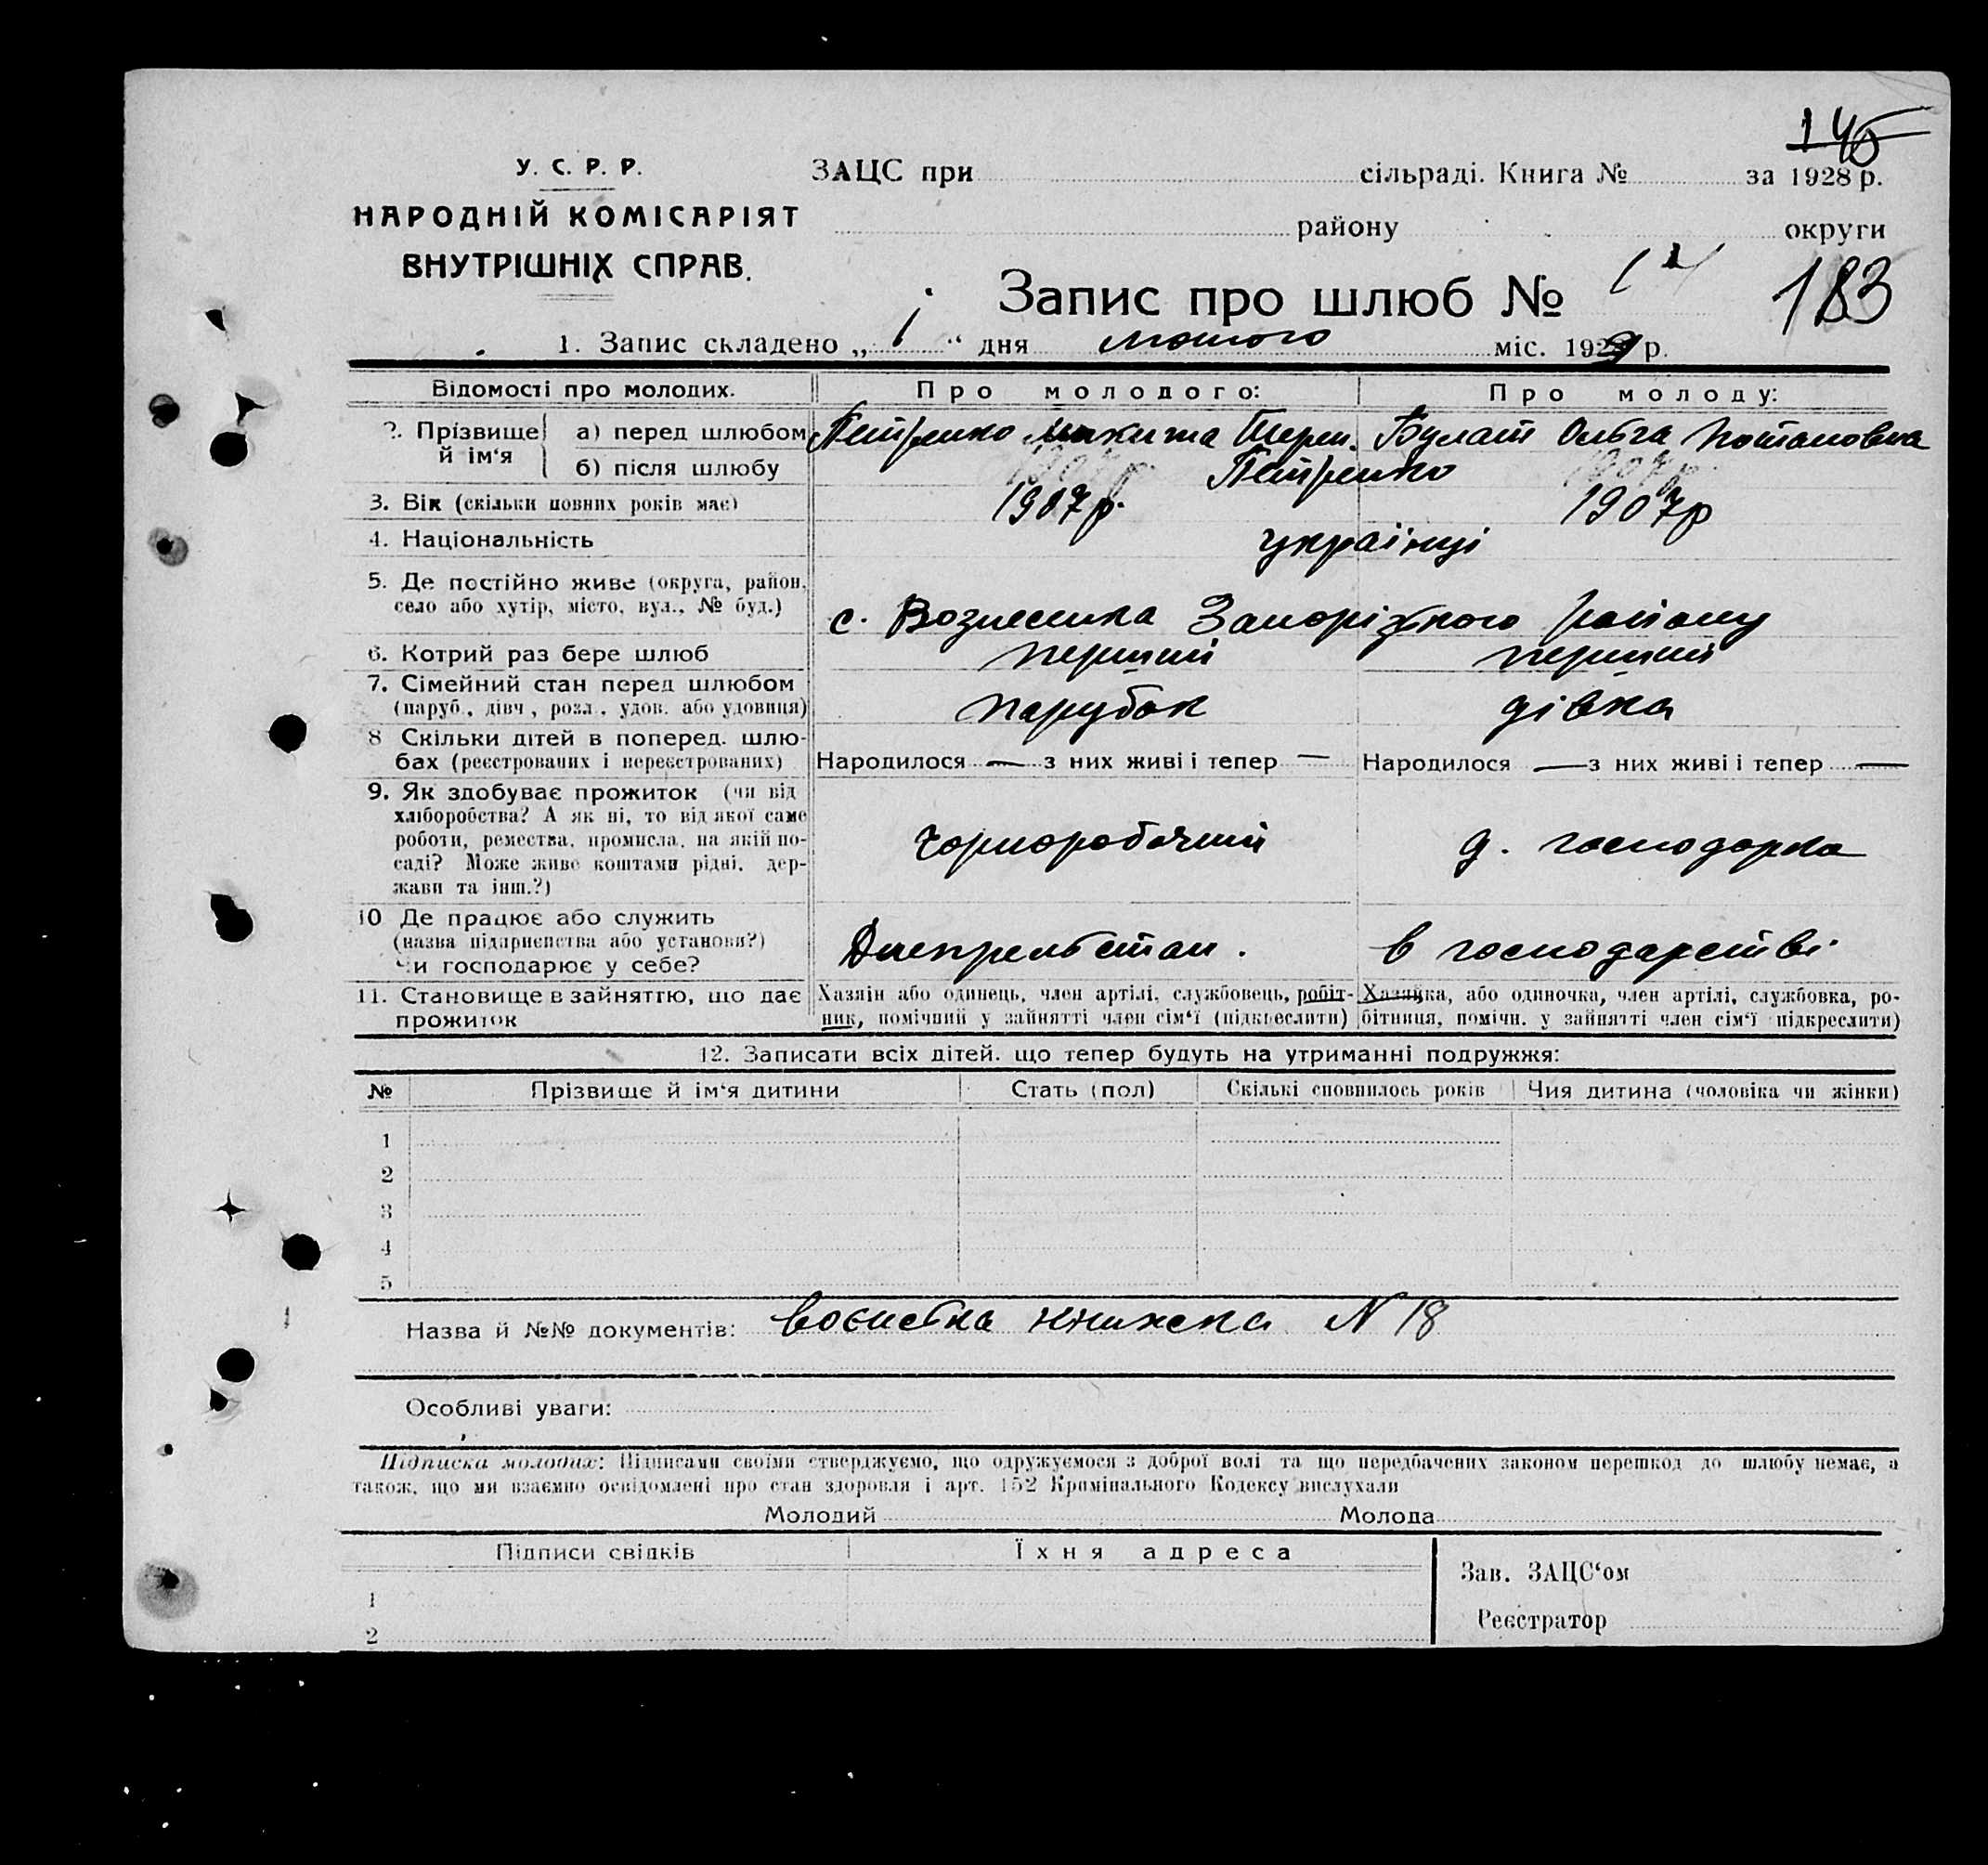 145
У. С. Р. Р.
НАРОДНІЙ КОМІСАРІЯТ
ВНУТРІШНІХ СПРАВ.
ЗАЦС при сільраді. Книга № за 1928 р.
району округи
Запис про шлюб №
183
1. Запис складено „ 1 “ дня лютого міс. 1929 р.
Відомості про молодих. Про молодого: Про молоду:
2. Прізвище й ім‘я а) перед шлюбом Петренко Микита Терен. Булат Ольга Потаповна
б) після шлюбу Петренко
3. Вік (скільки повних років має) 1907р. 1907р
4. Національність українці
5. Де постійно живе (округа, район, село або хутір, місто, вул., № буд.) с. Вознесенка Запоріжского району
6. Котрий раз бере шлюб перший перший
7. Сімейний стан перед шлюбом (паруб., дівч., розл., удов. або удовиця) парубок дівка
8 Скільки дітей в поперед. шлюбах (реєстрованих і нереєстрованих) Народилося — з них живі і тепер — Народилося — з них живі і тепер —
9. Як здобуває прожиток (чи від хліборобства? А як ні, то від якої саме роботи, ремества, промисла, на якій посаді? Може живе коштами рідні, держави та інш.?) чорноробочий д. господарка
10 Де працює або служить (назва підприємства або установи?) Чи господарює у себе? Днепрельстан. в господарстві
11. Становище в зайняттю, що дає прожиток Хазяїн або одинець, член артілі, службовець, робітник, помічний у зайнятті член сім‘ї (підкреслити) Хазяйка, або одиночка, член артілі, службовка, робітниця, помічн. у зайнятті член сім‘ї підкреслити)
12. Записати всіх дітей. що тепер будуть на утриманні подружжя:
№ Прізвище й ім‘я дитини Стать (пол) Скількі сповнилось років Чия дитина (чоловіка чи жінки)
1
2
3
4
5
Назва й №№ документів: воєнська книжска N 18
Особливі уваги:
Підписка молодих: Підписами своїми стверджуємо, що одружуємося з доброї волі та що передбачених законом перешкод до шлюбу немає, а
також, що ми взаємно освідомлені про стан здоровля і арт. 152 Кримінального Кодексу вислухали
Молодий Молода
Підписи свідків Їхня адреса
Зав. ЗАЦС‘ом
1
Реєстратор
2